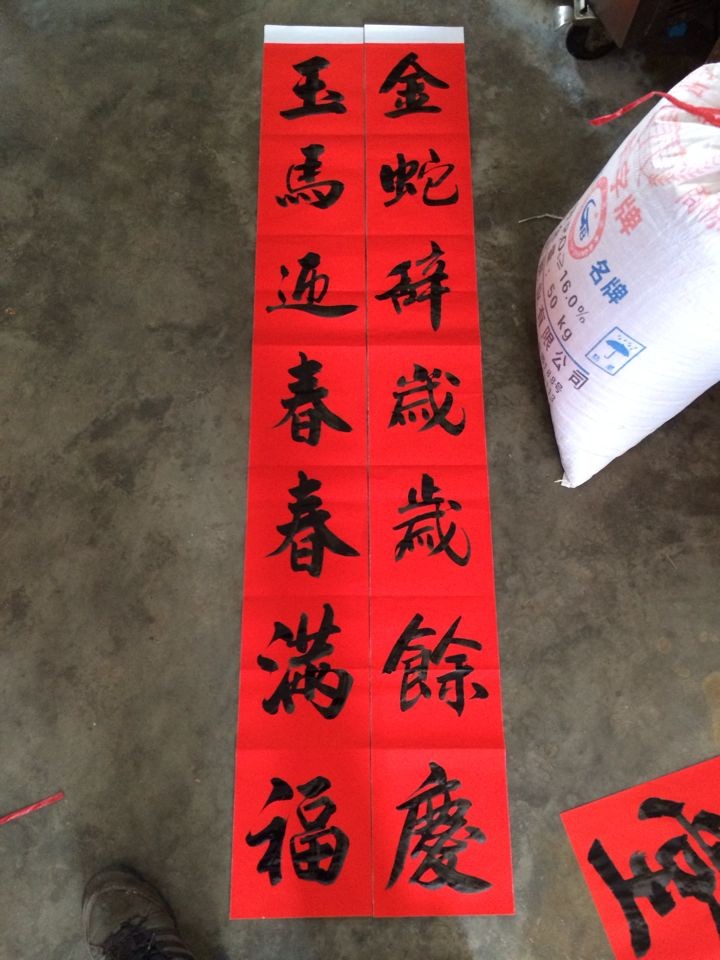 金蛇辞歲歲餘慶
玉馬迎春春满福
字牌
名牌
≤16.0%
50 kg
有限公司